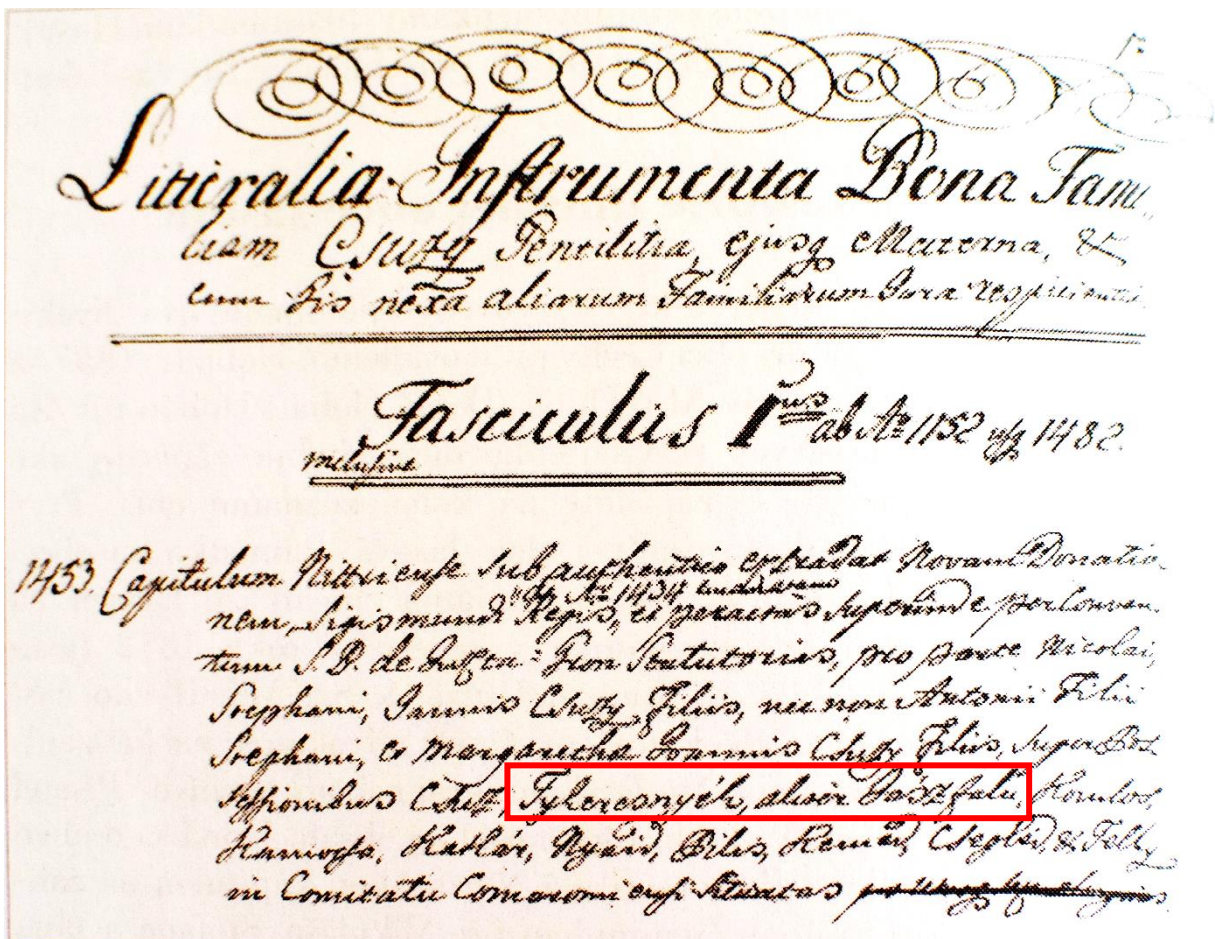 Litteralia Instrumenta Bona Fami
liam Csuzy Gentilitia, ejusq Materna, &
cum his nexa aliarum Familiarum Jura respicientia
Fasciculus 1mus ab Ao 1152 usq 1482.
inclusive
1453. Capitulum Nittriense sub authentico extradat Novam Donatio
de Ao 1434
nem, Sigismundi Regis, et peractas superinde per Conven
tum S. B. de Gron Statutorias, pro parte Nicolai,
Stephani, Joannis Csuzy Filiis, nec non Antonii Filii
Stephani, et Margaretha Joannis Csuzy Filiis, super Pos
sessionibus Csúz, Tyheresnyék, aliter Pász falu, Komlos,
Hamocsa, Hatlár, Nyárid, Pilis, Kemend, Czegléd & Fell,
in Comitatu Comaromiensi situatas